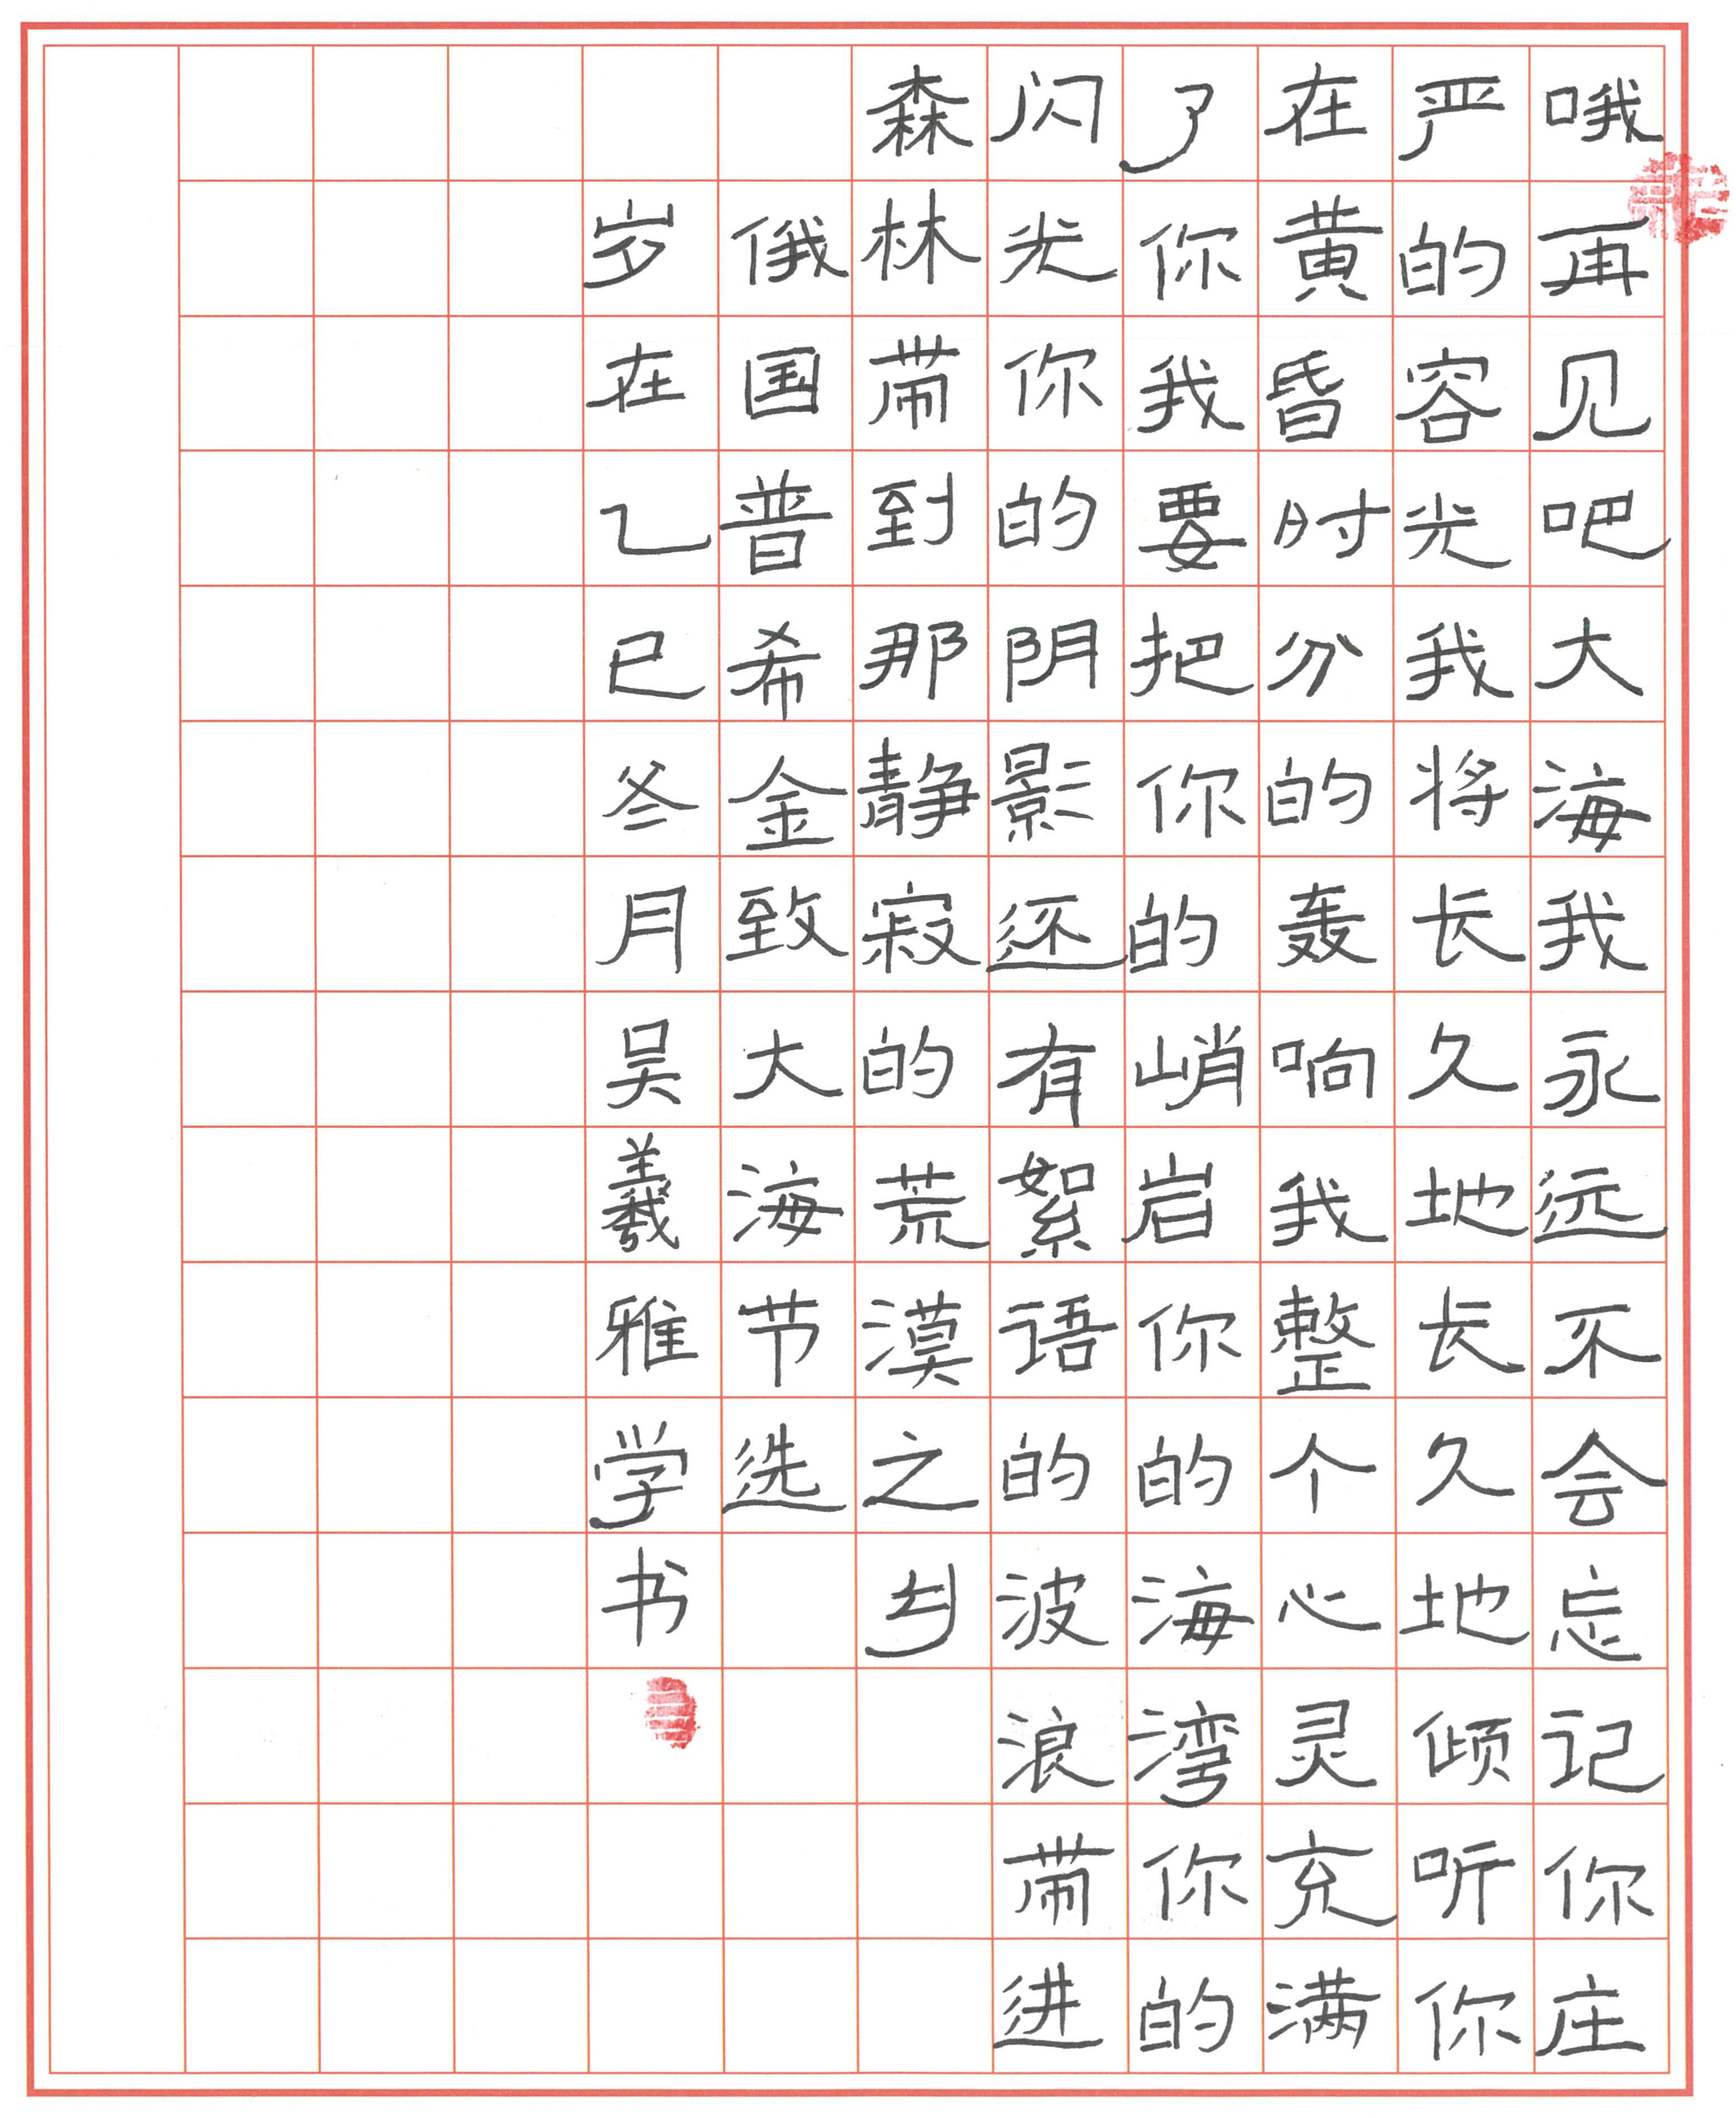 哦再见吧大海我永远不会忘记你庄
严的容光我将长久地长久地倾听你
在黄昏时分的轰响我整个心灵充满
了你我要把你的峭岩你的海湾你的
闪光你的阴影还有絮语的波浪带进
森林带到那静寂的荒漠之乡
俄国普希金致大海节选
岁在乙巳冬月吴羲雅学书